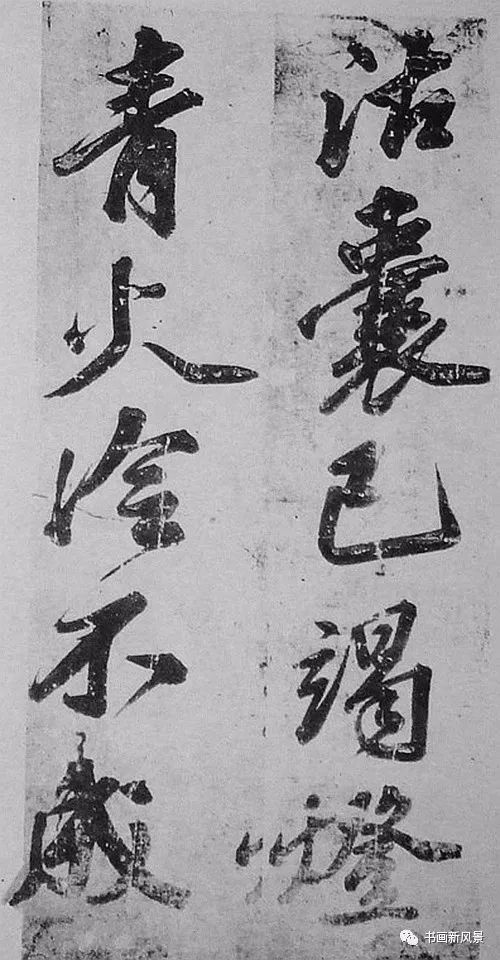 沽囊已竭燈
青火冷不成
书画新风景